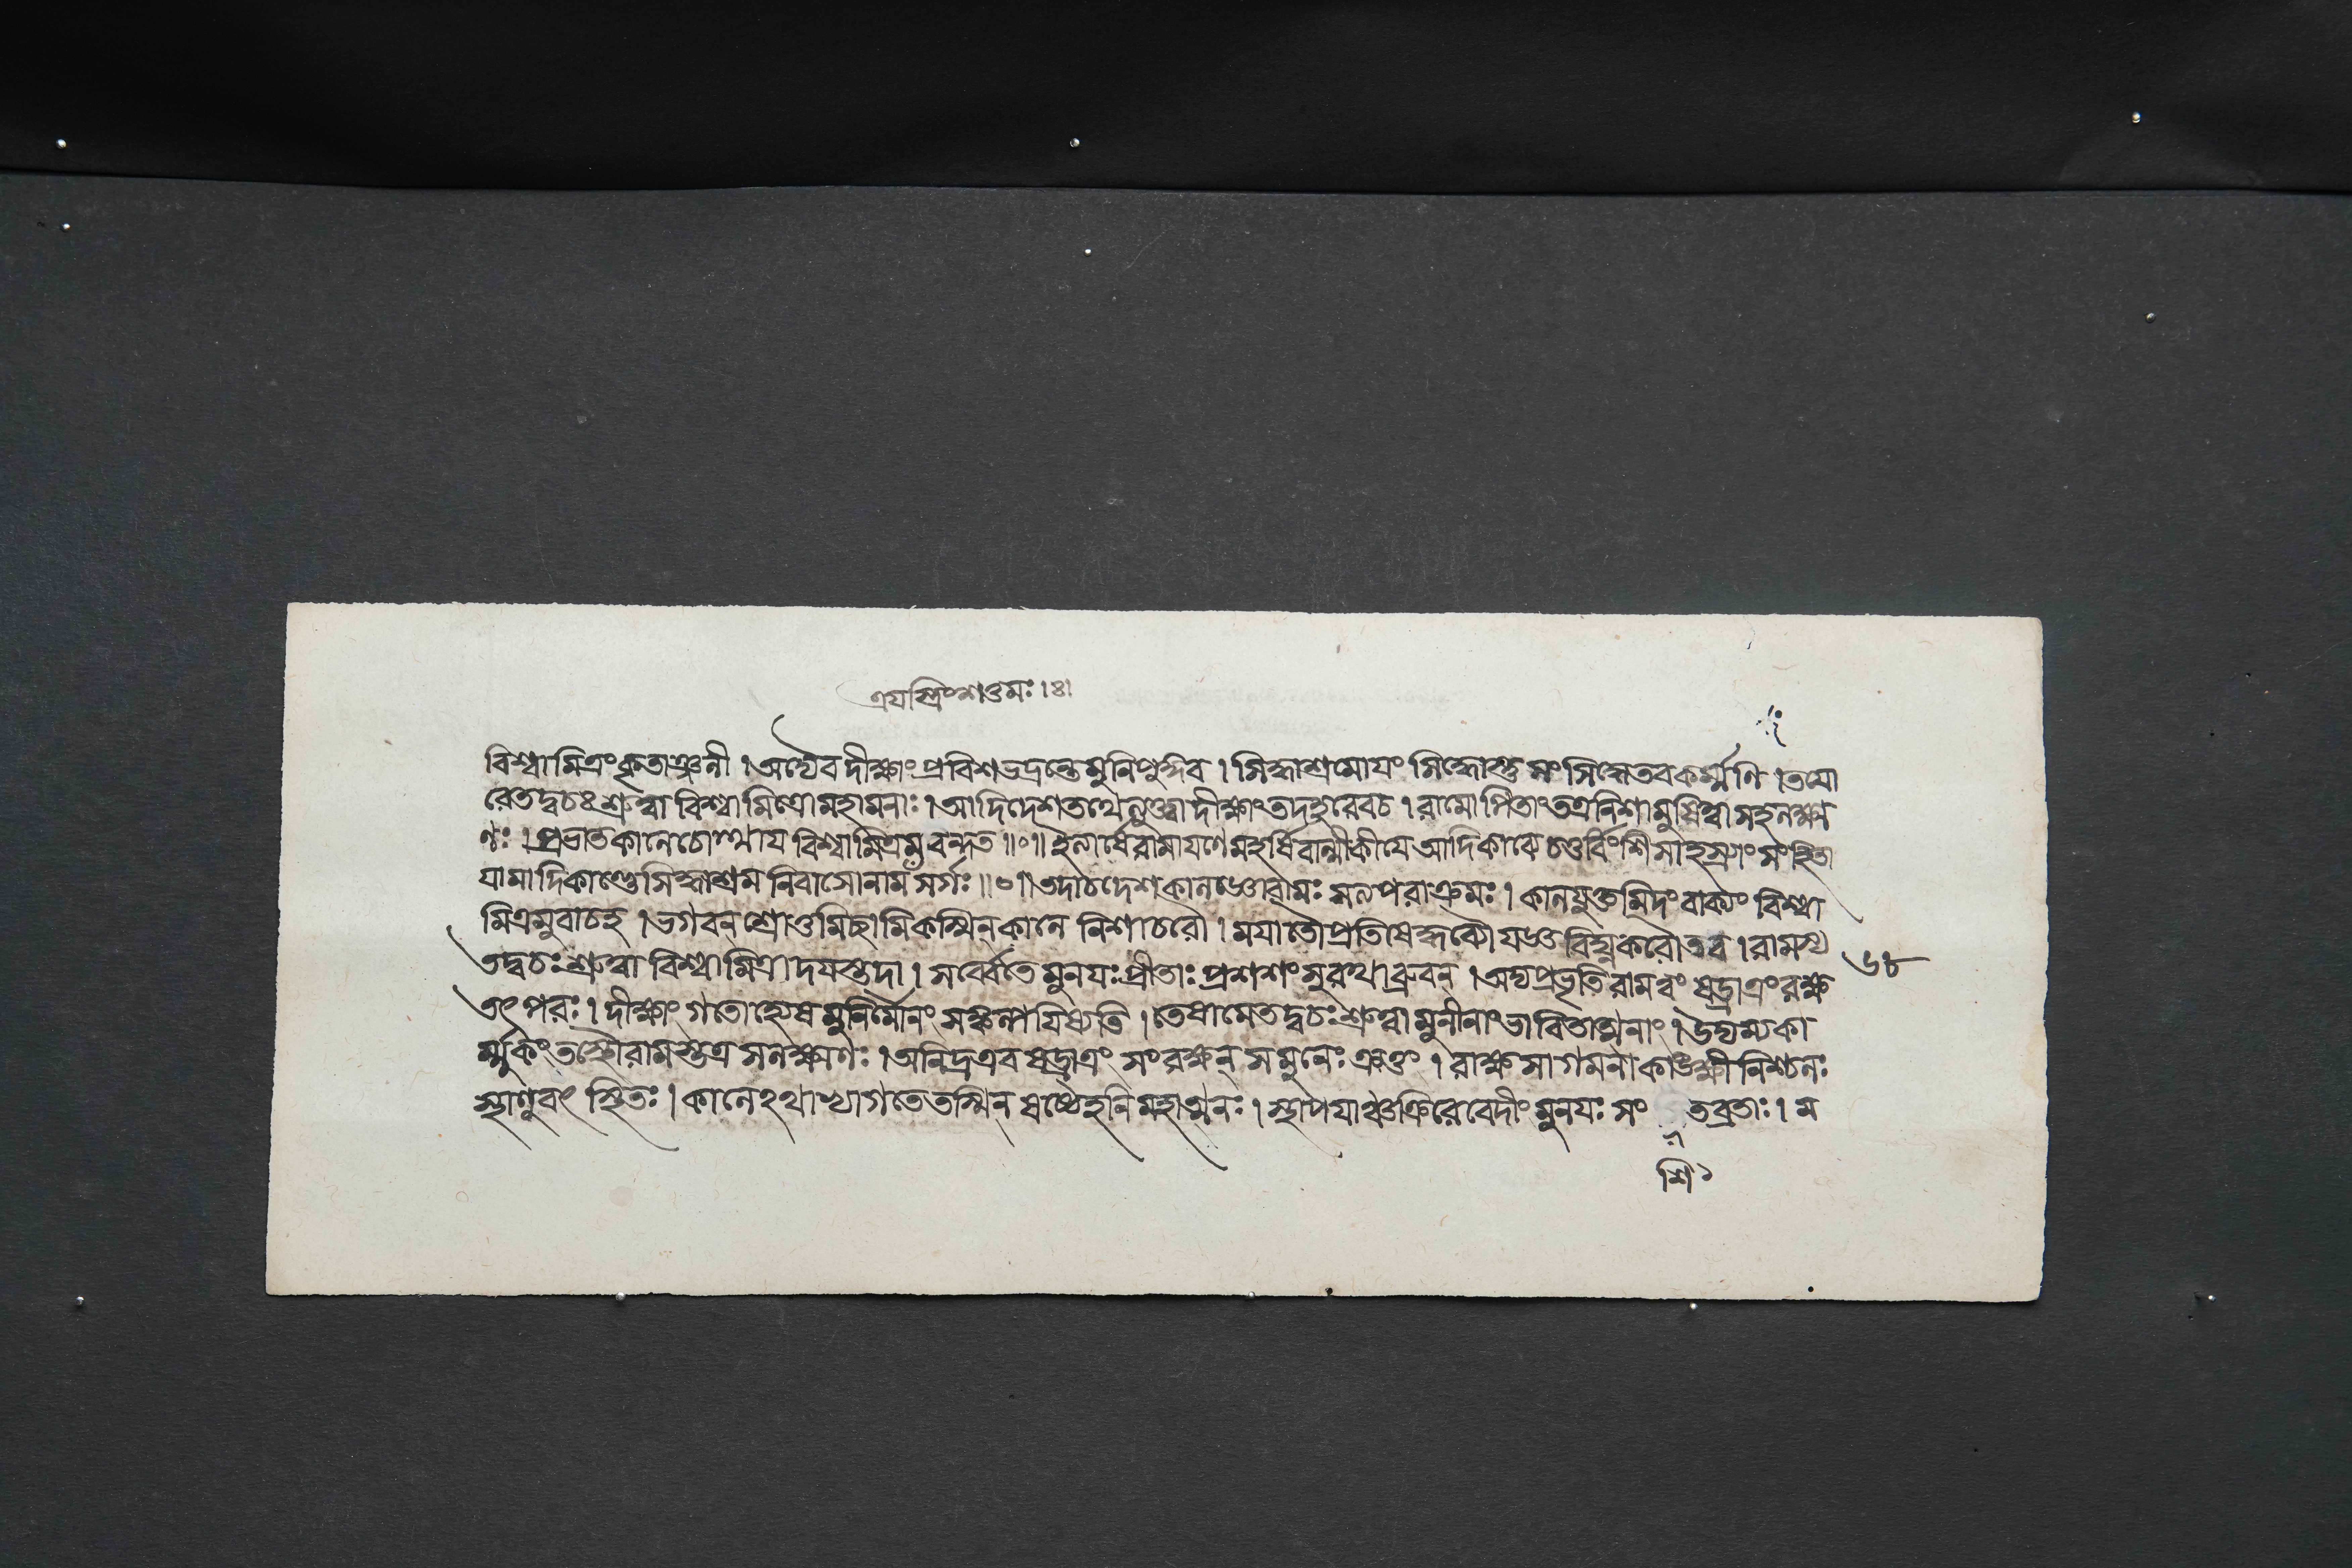 ত্রযস্ত্রিংশত্তমঃ।ঃ।
বিশ্বামিত্রং কৃতাঞ্জলী । অদ্যৈব দীক্ষাং প্রবিশ ভদ্রন্তে মুনিপুঙ্গব । সিদ্ধাশ্রমোযং সিদ্ধোস্তু সিদ্ধে তব কর্ম্মণি । তযো
রেতদ্বচঃ শ্রুত্বা বিশ্বামিত্রো মহামনাঃ । আদিদেশ তথেত্যুক্ত্বা দীক্ষাং তদহরেবচ । রামোপিতাং তত্র নিশামুষিত্বা সহলক্ষ্ম
ণঃ । প্রভাতকালে চোত্থায বিশ্বামিত্রমবন্দত ॥০॥ ইত্যার্ষে রামাযণে মহর্ষিবাল্মীকীযে আদিকাব্যে চতুর্বিংশীসাহস্র্যাং সংহিতা
যামাদিকাণ্ডে সিদ্ধাশ্রম নিবাসোনাম সর্গঃ ॥০॥ তদাচ দেশকালজ্ঞো রামঃ সত্যপরাক্রমঃ । কালযুক্তমিদং বাক্যং বিশ্বা
মিত্রমুবাচহ । ভগবন্ শ্রোতুমিচ্ছামি কস্মিন্ কালে নিশাচরৌ । মযা তৌ প্রতিষেদ্ধব্যৌ যজ্ঞ বিঘ্নকরৌ তব । রামস্য
তদ্বচঃ শ্রুত্বা বিশ্বামিত্রাদযস্তদা । সর্ব্বেতে মুনযঃ প্রীতাঃ প্রশশংসুরথাব্রুবন্ । অদ্যপ্রভৃতি রামত্বং ষড্রাত্রং রক্ষ
৬৮
তৎপরঃ । দীক্ষাং গতোহ্যেষ মুনির্মৌনং সঙ্কল্পযিষ্যতি । তেষামেতদ্বচঃ শ্রুত্বা মুনীনাং ভাবিতাত্মনাং । উদ্যম্যকা
র্ম্মুকং তস্থৌ রামস্তত্র সলক্ষ্মণঃ । অনিদ্র এব ষড্রাত্রং সংরক্ষন্ স মুনেঃ ক্রতুং । রাক্ষসাগমনাকাঙ্ক্ষী নিশ্চলঃ
স্থাণুবৎ স্থিতঃ । কালেঽথাভ্যাগতে তস্মিন্ ষষ্ঠেহনি মহাত্মনঃ । স্থাপযাঞ্চক্রিরে বেদীং মুনযঃ সং তব্রতাঃ । ম
শি